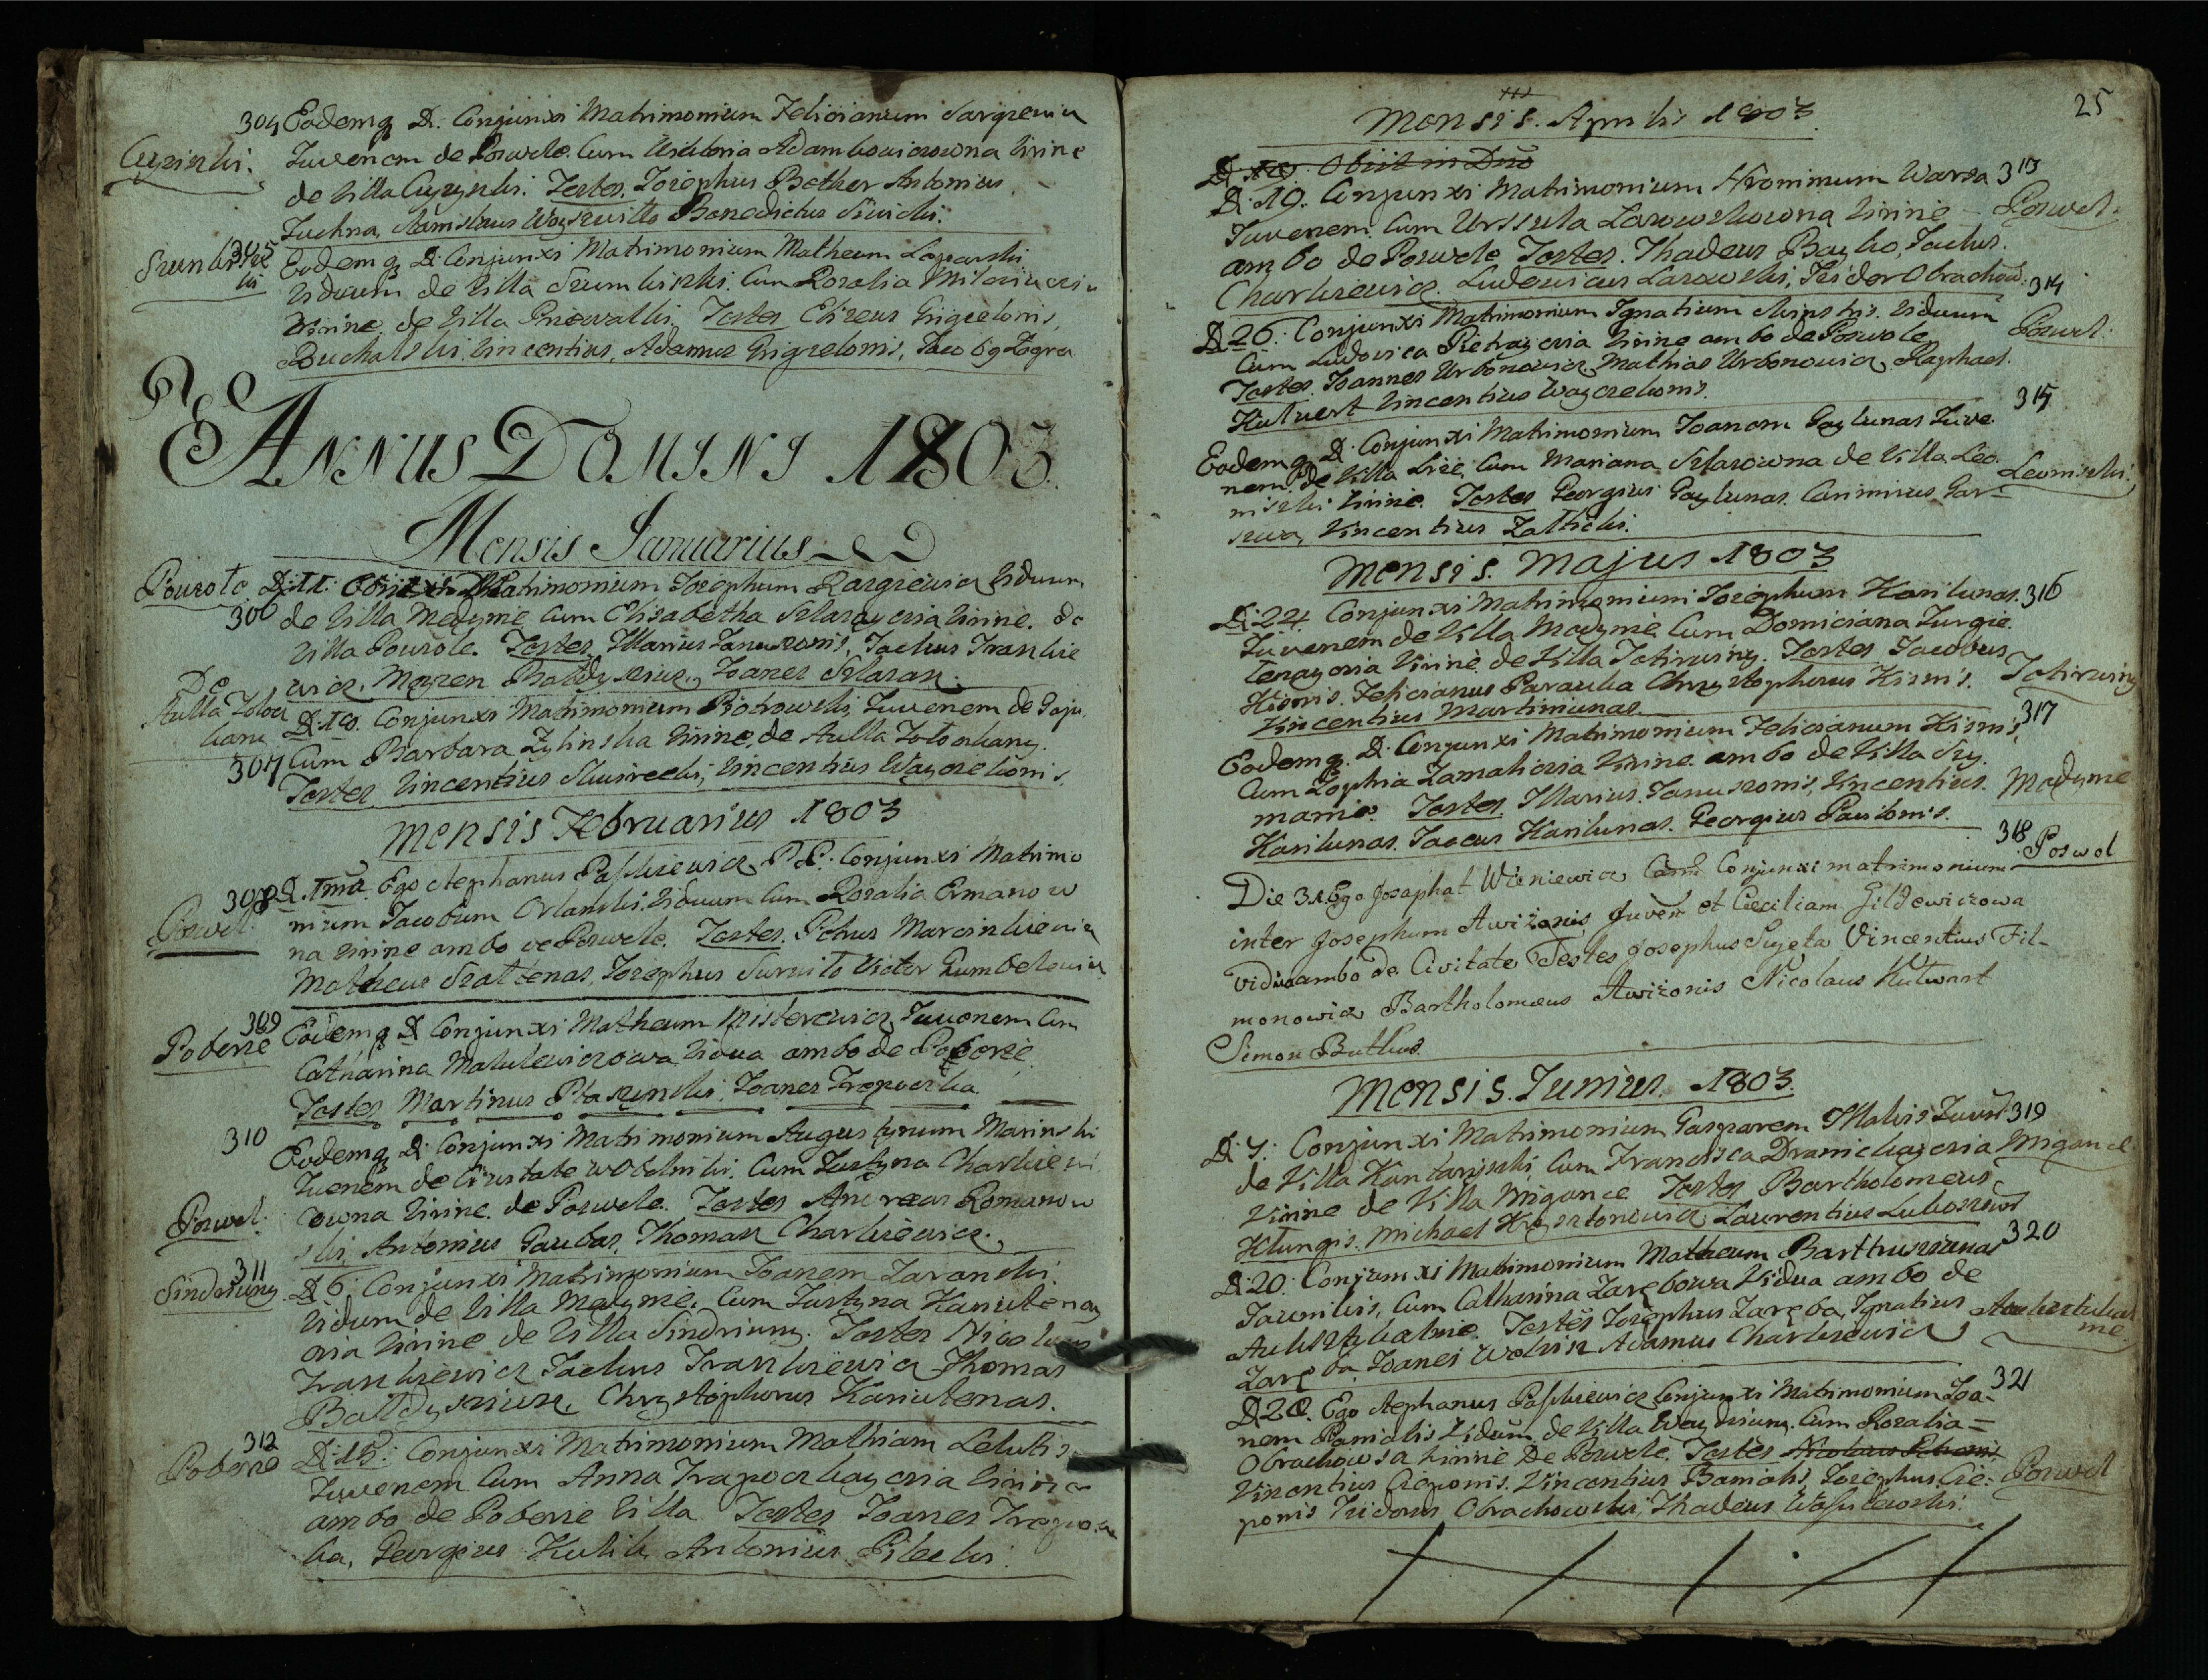 304 Eodemq D. Conjunxi Matrimonium Felicianum Sargiewicz
Cyrinki. Juvenem de Poswole. Cum Victoria Adambowiczowna Virine
de Villa Cyzynki. Testes. Josephus Bether Antonius
Juchna, Stanislaus Woyszwitto Benedictus Siwicki.
305 Eodemq D. Conjunxi Matrimonium Matheum Łopawski
Viduum de Villa Szumkiszki. Cum Rosalia
Virine de Villa Testes Elizeus Grigielonis,
Buchalski Vincentius, Adamus Grigielonis, Jacobq
ANNUS DOMINI 1803.
Mensis Januarius
Powole D. 11. Matrimonium Josephum Rargiewicz Viduum
306 de Villa Medyme Cum Elisabetha Virine. de
Villa Powole. Testes Illarius Janusonis, Jachus Frankie
wicz, Mozen Bałdyszius, Joanes Sklaran.
Do
Aulla Toloc
kany D. 18. Conjunxi Matrimonium Piotrowski, Juvenem de Goju
307 Cum Barbara Zylinska Virine, de Aulla Totockany.
Testes Vincentius Vincentius Wayczelionis.
Mensis Februarius 1803
308 D. 1ma. Ego Stephanus Paszkiewicz P.P. Conjunxi Matrimo
Poswol. nium Jacobum Orlanski. Viduum Cum Rosalia Ermanow
na Virine ambo de Poswole. Testes. Petrus Marcinkiewicz
Matheus Szattenas, Josephus Surwito Victor Gumbelewicz
309
Poberze Eodemq D Conjunxi Matheum Misterewicz Juvenem Cum
Catharina Matulewiczowa Vidua ambo de Poberze
Testes Martinus Ptaszinski, Joanes Tropoczka.
310 Eodemq D. Conjunxi Matrimonium Augustynum Marinski
Juenem de Civitate Wobolniki. Cum Justyna Charkiewi
Poswol. czowna Virine. de Poswole. Testes Andreas Romanow
ski, Antonius Gaubas, Thomas Charkiewicz.
311
Sindriuny. D 6. Conjunxi Matrimonium Joanem Zaranski.
Vidum de Villa Medyme. Cum Justyna Kaniutenay
cia Virine de Villa Sindriuny. Testes Nicolaus
Frankiewicz Jachus Frankiewicz Thomas
Bałdyszius, Chrystophorus Kaniutenas.
312
Poberze D. 15. Conjunxi Matrimonium Mathiam Lelulis
Juvenem Cum Anna Trapoczkayczia Virine
ambo de Poberze Villa Testes Joanes Trapocz
ka, Georgius Kulik, Antonius Pilecki.
25
Mensis. Aprilis 1803
D. 18. Obiit in Dno
D. 19. Conjunxi Matrimonium Hironimum Warza 313
Juvenem Cum Urssula Lasowskowna Virine Poswol.
ambo de Poswole Testes. Thadeus Bayko, Jachus.
Charkiewicz. Ludovicus Lasowski, Isidor Obrachow. 314
D 26. Conjunxi Matrimonium Ignatium Viduum Poswol.
Cum Ludovica Pietrayczia Virine ambo de Poswole
Testes Joannes Urbonowicz Mathias Urbonowicz, Raphael.
Kutwert Vincentius Wayczelionis. 315
Eodemq D. Conjunxi Matrimonium Joanem Gaylunas Juve.
nem de Villa Lize Cum Mariana Szlazowna de Villa Leo. Leoniszki.
niszki Virine. Testes Georgius Gaylunas. Casimirus Gar=
szwa, Vincentius Zalticki.
Mensis. Majus 1803
D. 22. Conjunxi Matrimonium Josephum Karilunas. 316
Juvenem de Villa Medyme Cum Domiciana Jurgie.
tenayczia Virine de Villa Totiruiny. Testes Jacobus Totiruiny
Kisonis. Felicianus Paraulia Chrystophorus Kisonis.
Vincentius Martinunas. 317
Eodemq. D. Conjunxi Matrimonium Felicianum Kisonis,
Cum Zophia Zamaticzia Virine ambo de Villa Szy. Medyme
manie. Testes. Illarius. Janusonis, Vincentius.
Karilunas. Jaocus Karilunas. Georgius Paulionis. 318 Poswol
Die 31 Ego Josaphat Wieniewicz Conjunxi matrimonium
inter Josephum Awiżonis Juven et Caeciliam Gildewiczowa
vidua ambo de Civitate Testes Josephus Sujeta Vincentius Fil-
monowicz Bartholomæus Awiżonis Nicolaus Kutwart
Simon Butkus.
Mensis. Junius. 1803.
D. 7. Conjunxi Matrimonium Gasparem Illakis Juved 319
de Villa Kantaryszki, Cum Francisca Dranickayczia Migance
Virine de Villa Migance Testes Bartholomeus
Klungis. Michael Krysztoncwicz Laurentius Lukoszewi 320
D. 20. Conjunxi Matrimonium Matheum Barthuszunas
Jaunikis, Cum Catharina Zarębowa Vidua ambo de
Aukszykalnie. Testes Josephus Zaręba, Ignatius
Zaręba, Joanes Wolkin Adamus Charkiewicz
321
D 20. Ego Stephanus Paszkiewicz Conjunxi Matrimonium Joa-
nem Paniatis Vidum de Villa Cum Rosalia=
Obrachowsa Virine De Poswole. Testes Poswol
Vincentius Cieponis. Vincentius Bamiatis Josephus Cie-
ponis Isidorus Obrachowski, Thadeus